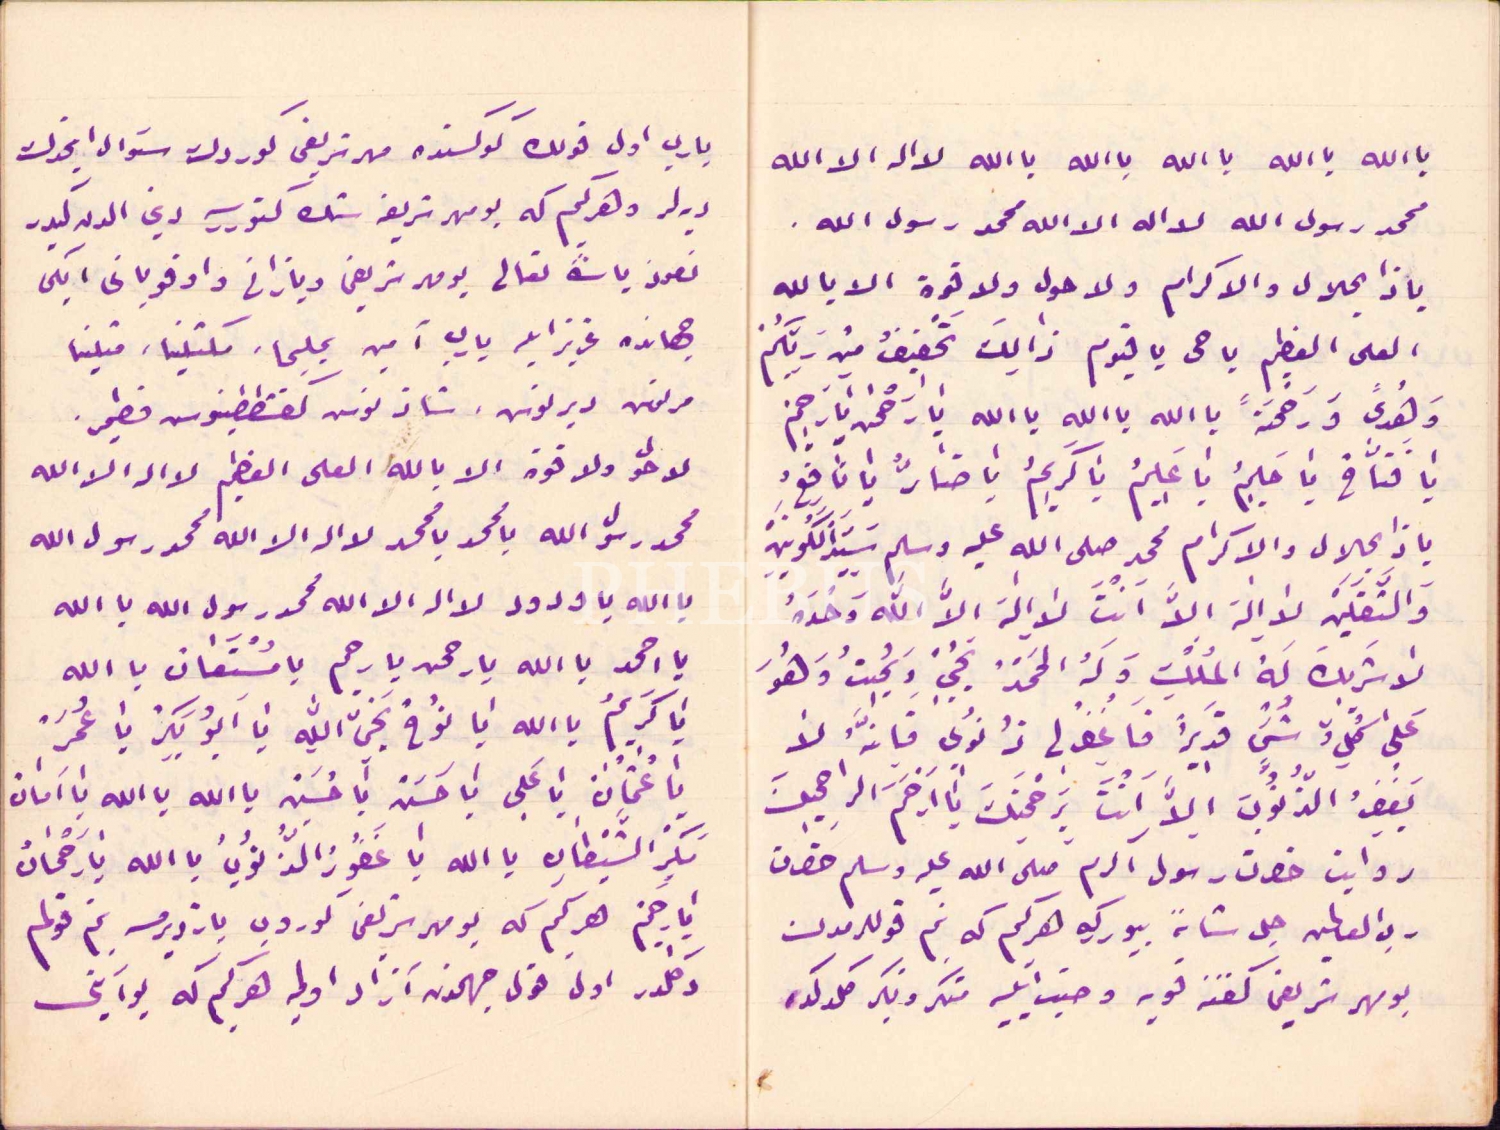 يا الله يا الله يا الله يا الله يا الله لا اله الا الله
محمد رسول الله لا اله الا الله محمد رسول الله .
ياذا الجلال والاكرام ولا حول ولا قوة الا بالله
العلى العظيم يا حى يا قيوم ذَالِكَ تَخْفِيفُ مِنْ رَبِّكُمْ
وَهُدًى وَرَحْمَةً يا الله يا الله يا الله يَا رَحْمٰنْ يَا رَحِيمْ
يَا فَتَّاحُ يَا حَلِيمُ يَا عَلِيمُ يَا كَرِيمُ يَا ضَارُّ يَا نَافِعُ
ياذا الجلال والاكرام محمد صلى الله عليه وسلم سَيِّدَ الْكَوْنَيْنِ
وَالثَّقَلَيْنْ لَا اِلٰهَ اِلَّا اَنْتَ لَا اِلٰهَ اِلَّا اللّٰهُ وَحْدَهُ
لَا شَرِيكَ لَهُ الْمُلْكُ وَلَهُ الْحَمْدُ يُحْيِي وَيُمِيتُ وَهُوَ
عَلٰى كُلِّ شَىْءٍ قَدِيرٌ فَاغْفِرْلِى ذُنُوبِى فَاِنَّهُ لَا
يَغْفِرُ الذُّنُوبَ اِلَّا اَنْتَ بِرَحْمَتِكَ يَا اَرْحَمَ الرَّاحِمِينَ
روايت حضرت رسول اكرم صلى الله عليه وسلم حضرت
رب العالمين جل شانهُ بيوركه هركيم كه بنم قوللرمدن
بو مهر شريفى كفننه قويه وصيت ايليه منكر ونكير كلدكده
يارب اول قولك كوكسنده مهر شريفى كوردك سئوال ايتمدك
ديرلر وهركيم كه بو مهر شريفه شك كتورسه دينى الدن كيدر
نعوذ بالله تعالى بو مهر شريفى ويازانى واوقويانى ايكى
جهانده عزيز ايله يارب آمين يمليخا، مكثلينا، مثلينا
مرنوش دبرنوش، شاذنوش كفشططيوش قطمير .
لا حول ولا قوة الا بالله العلى العظيم لا اله الا الله
محمد رسول الله يا محمد يا محمد لا اله الا الله محمد رسول الله
يا الله يا ودود لا اله الا الله محمد رسول الله يا الله
يا احمد يا الله يا رحمن يا رحيم يا مُسْتَعَانْ يا الله
يَا كَرِيمُ يا الله يَا نُوحُ نَجِىَّ اللّٰهِ يَا اَبُو بَكِرْ يَا عُمَرْ
يَا عُثْمَانْ يَا عَلِى يَا حَسَنْ يَا حُسَيْنْ يا الله يا الله يَا اَمَانْ
الشَّيْطَانِ يا الله يَا غَفُورَ الذُّنُوبُ يا الله يَا رَحْمَانُ
يَا رَحِيمْ هركيم كه بو مهر شريفى كوروب يازديرمسه بنم قولم
دكلدر اول قول جهنمدن آزاد اولمه هركيم كه بو آيتى
PHEBUS